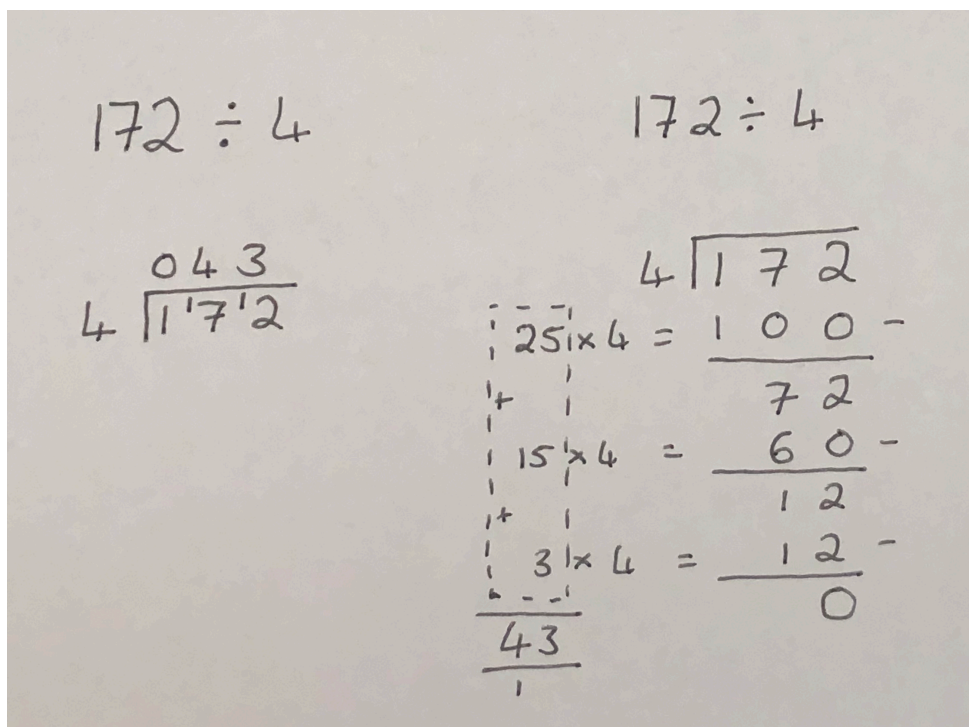 172 ÷ 4
043
4 1 17 12
172 ÷ 4
4 1 7 2
25 × 4 = 1 0 0 -
+ 7 2
15 × 4 = 6 0 -
+ 1 2
3 × 4 = 1 2 -
0
43
1